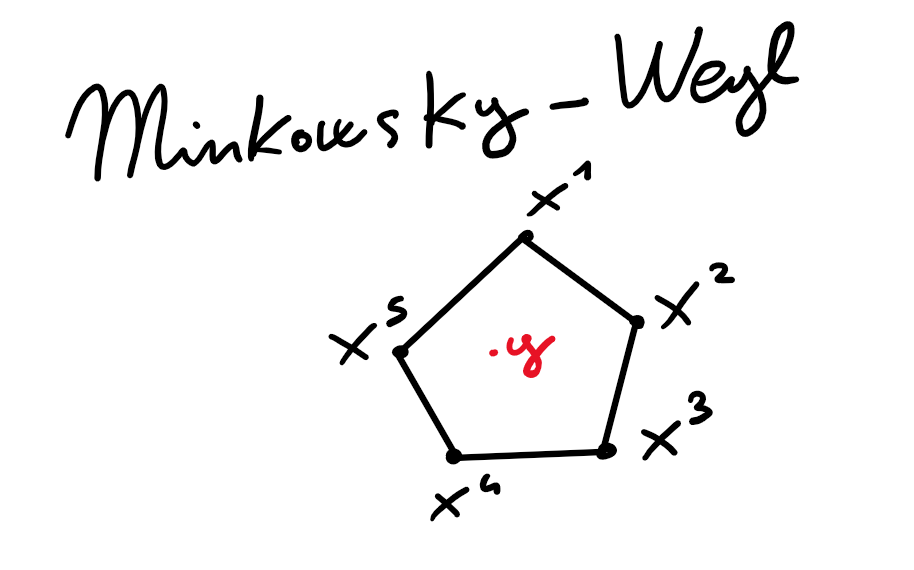 Minkowsky - Weyl
x¹
x²
x⁵
.y
x³
x⁴